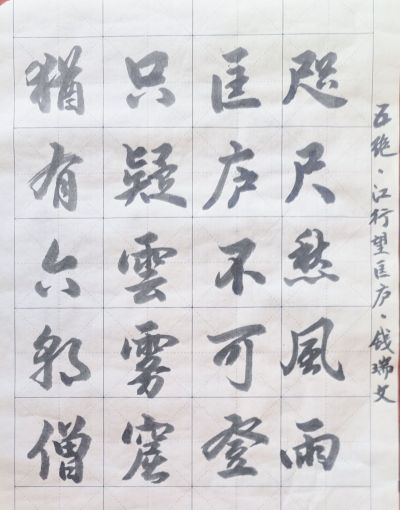 五绝·江行望匡庐·钱瑞文
咫尺愁風雨
匡庐不可登
只疑雲雾窟
猶有六朝僧